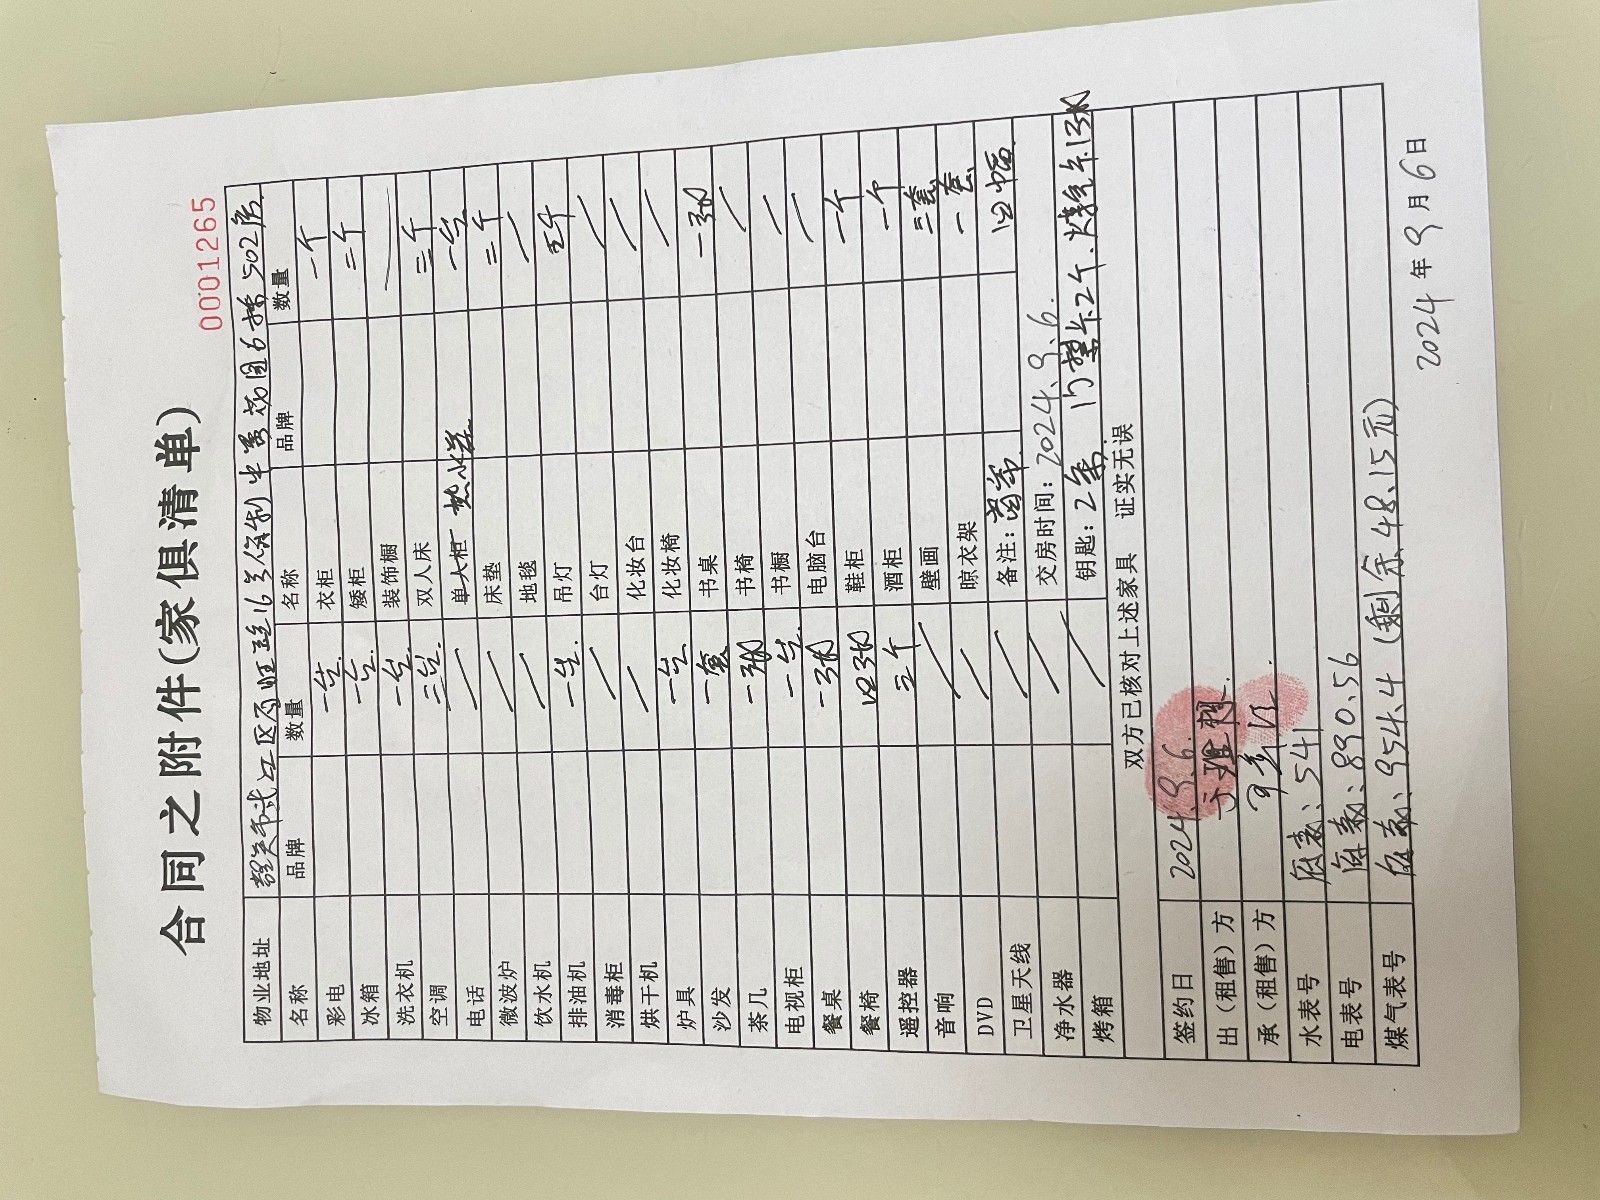 0001265
合同之附件(家俱清单)
物业地址 韶关市武江区 16号 6栋502房
名称 品牌 数量 名称 品牌 数量
彩电 一台 衣柜 一个
冰箱 一台 矮柜 二个
洗衣机 一台 装饰橱
空调 三台 双人床 三个
电话 单人柜 热水器 一台
微波炉 床垫 三个
饮水机 地毯
排油机 一台 吊灯 五个
消毒柜 台灯
烘干机 化妆台
炉具 一台 化妆椅
沙发 一套 书桌 一张
茶几 一张 书椅
电视柜 一台 书橱
餐桌 一张 电脑台
餐椅 四张 鞋柜 一个
遥控器 三个 酒柜 一个
音响 壁画 三套
DVD 晾衣架 一套
卫星天线 备注: 窗帘 四幅
净水器 交房时间: 2024.9.6.
烤箱 钥匙: 2条, 门禁卡2个. 煤气卡1张
双方已核对上述家具 证实无误
签约日 2024.9.6.
出(租售)方
承(租售)方
水表号 底表: 541
电表号 底表: 890.56
煤气表号 底表: 954.4 (剩余48.15元)
2024年9月6日